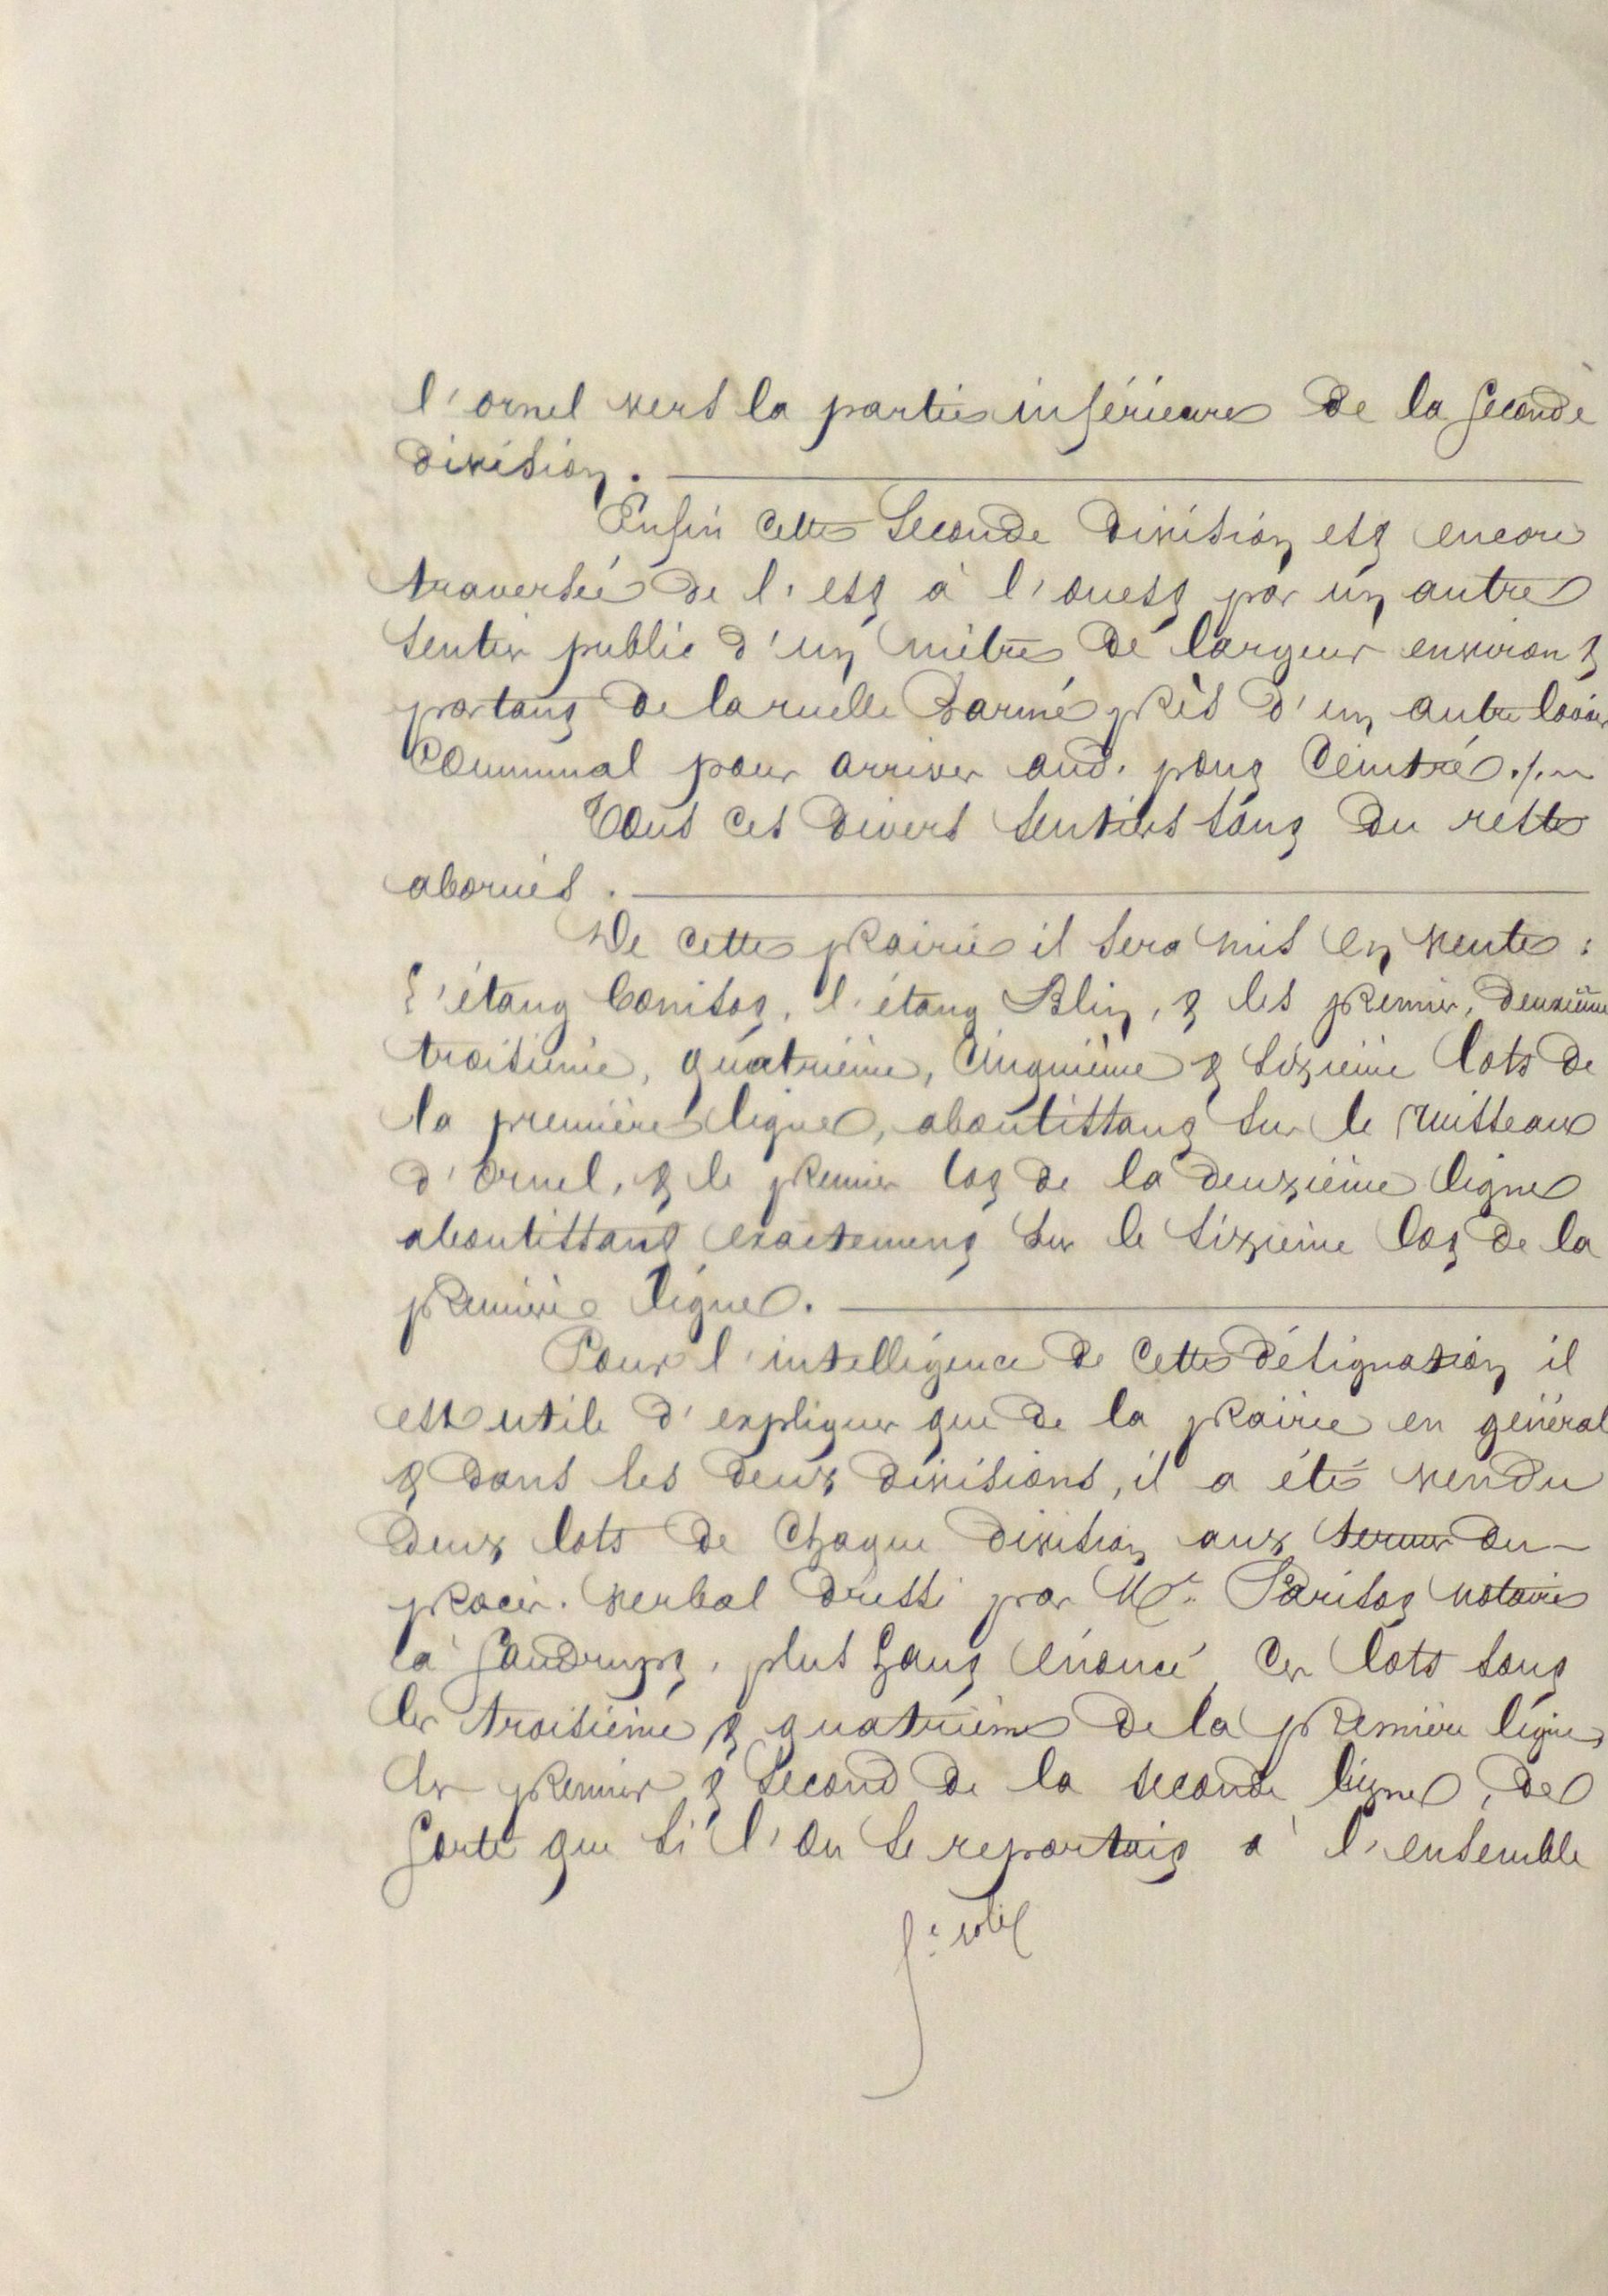 l'ornel vers la partie inférieure de la seconde
division.
Enfin cette seconde division est encore
traversée de l'est à l'ouest par un autre
sentier public d'un mètre de largeur environ &
partant de la ruelle près d'un autre lavoir
communal pour arriver aud. pont ceintré ./.
Tous ces divers sentiers sont du reste
abornés.
De cette prairie il sera mis en vente :
L'étang l'étang Blin, & les premier, deuxième
troisième, quatrième, cinquième & sixième lots de
la première ligne, aboutissant sur le ruisseau
d'ornel, & le premier lot de la deuxième ligne
aboutissant exactement sur le sixième lot de la
première ligne.
Pour l'intelligence de cette désignation il
est utile d'expliquer que de la prairie en général
& dans les deux divisions, il a été vendu
deux lots de chaque division aux termes du
procès-verbal dressé par Me Parisot notaire
à plus haut énoncé, ces lots sont
les troisième & quatrième de la première ligne,
les premier & second de la seconde ligne, de
sorte que si l'on se reportait à l'ensemble